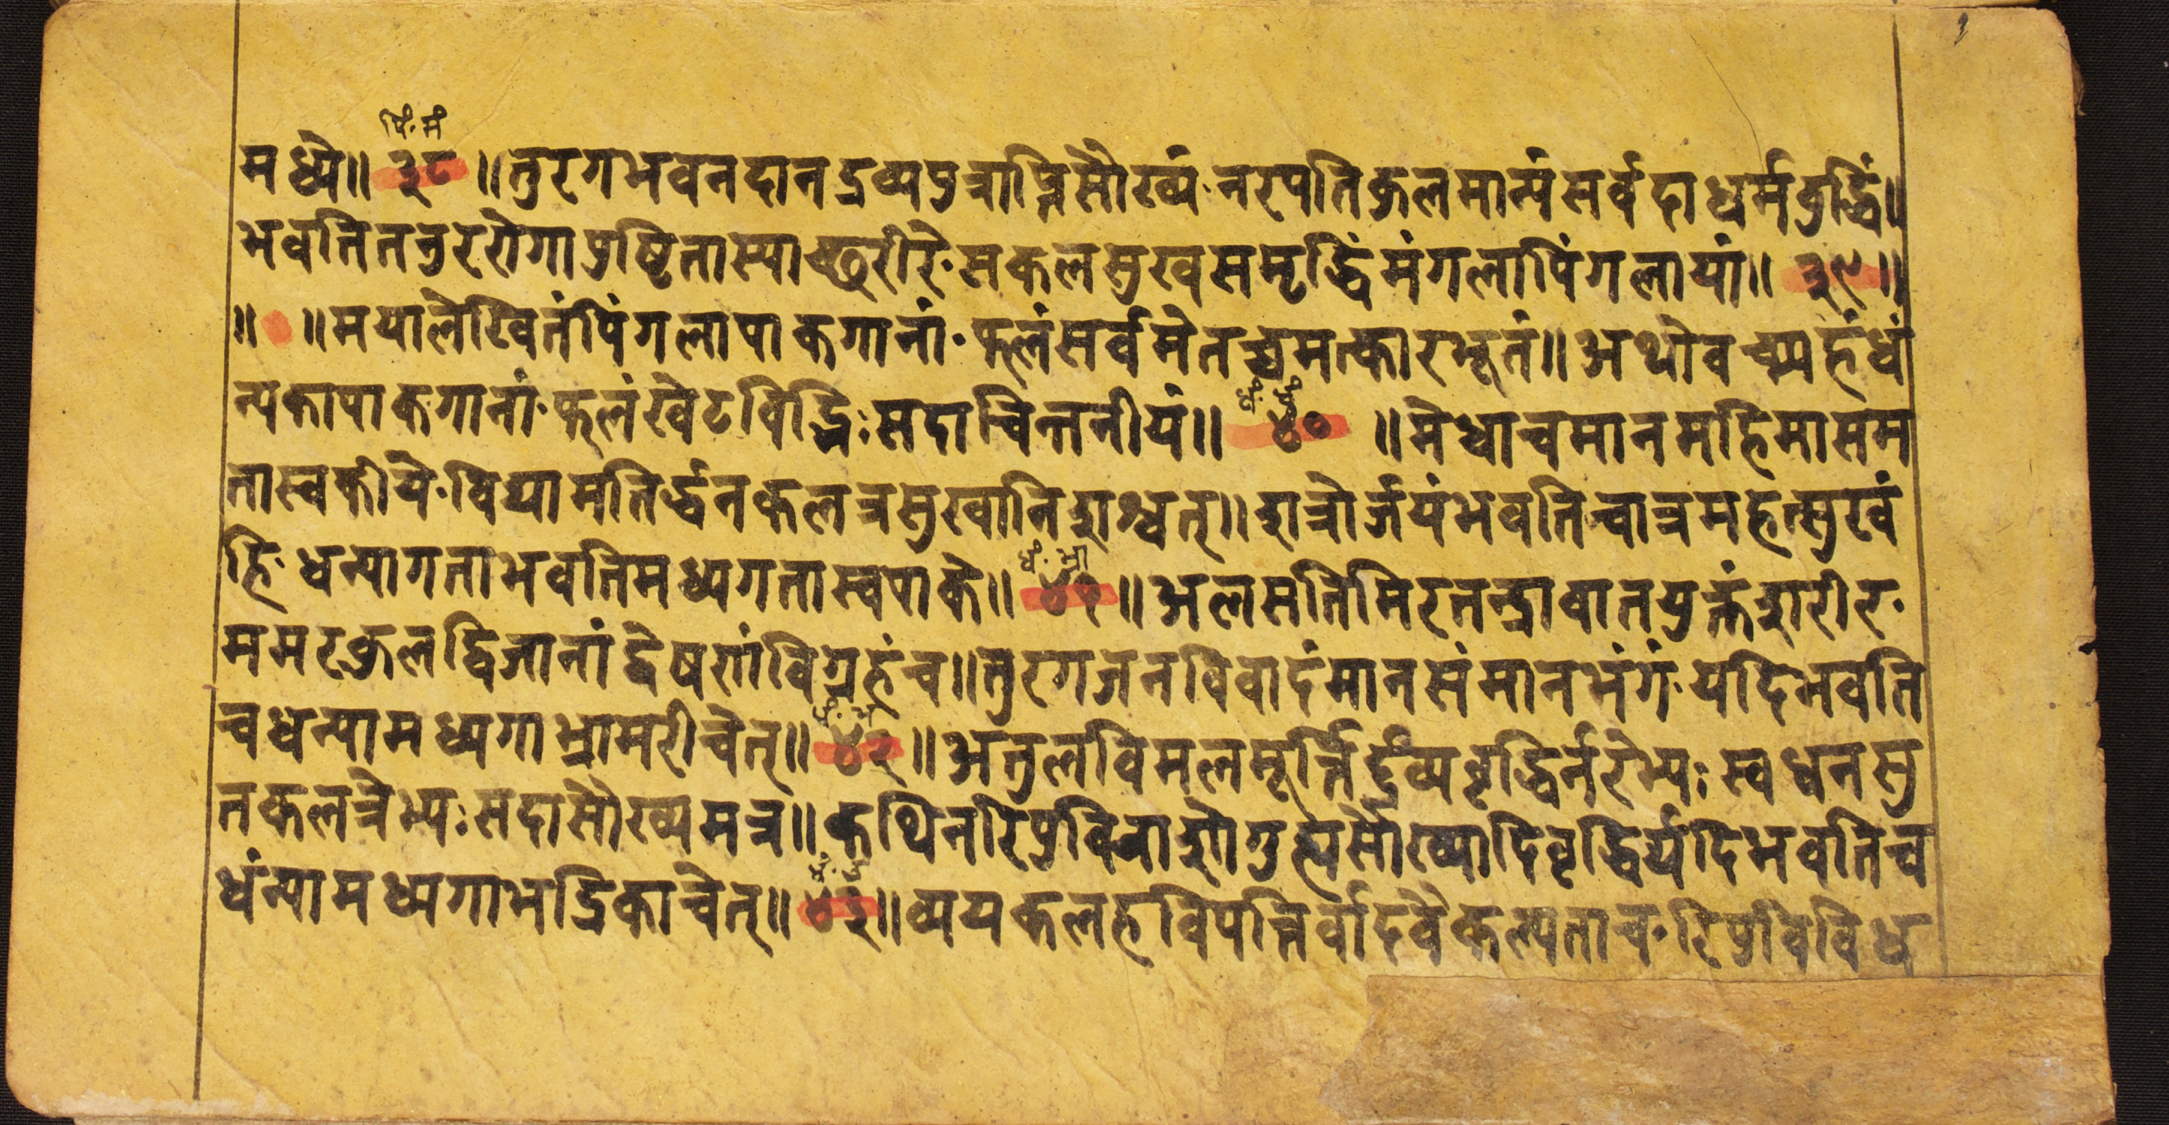 पिं. मं
मध्ये॥ ३८ ॥तुरगभवनदानद्रव्यपुत्राप्तिसौख्यं नरपतिकुलमान्यं सर्वदाधर्मवुद्धिं॥
भवतितनुररोगापुष्टितास्याच्छरीरे सकलसुखसमृद्धिंमंगलापिंगलायां॥ ३९॥
॥ ॥मयालेखितंपिंगलापाकगानां फलंसर्वमेतच्चमत्कारभूतं॥अथोवच्म्यहंधं
न्यकापाकगानां फलंखेटविद्भिः सदाचिन्तनीयं॥ ४० ॥मेधाचमानमहिमासम
तास्वकीये विद्यामतिर्द्धनकलत्रसुखानिशश्वत्॥शत्रोर्जयंभवतिचात्रमहत्सुखं
धं. भ्रा
हि धन्यागताभवतिमध्यगतास्वपाके॥ ४१॥अलसतिमिरतन्द्रावातयुक्तंशरीर
ममरकुलद्विजानांद्वेषणांविग्रहंच॥तुरगजनविवादंमानसंमानभंगं यदिभवति
चधन्यामध्यगाभ्रामरीचेत्॥ ४२॥अतुलविमलमूर्त्तिर्द्रव्यवृद्धिर्नरेभ्यः स्वधनसु
तकलत्रेभ्यः सदासौख्यमत्र॥कथितरिपुविनाशोगुह्यसौख्यादिवृद्धिर्यदिभवतिच
धंन्यामध्यगाभद्रिकाचेत्॥ ४३॥व्ययकलहविपत्तिर्वादवैकल्यताच रिपुविविध